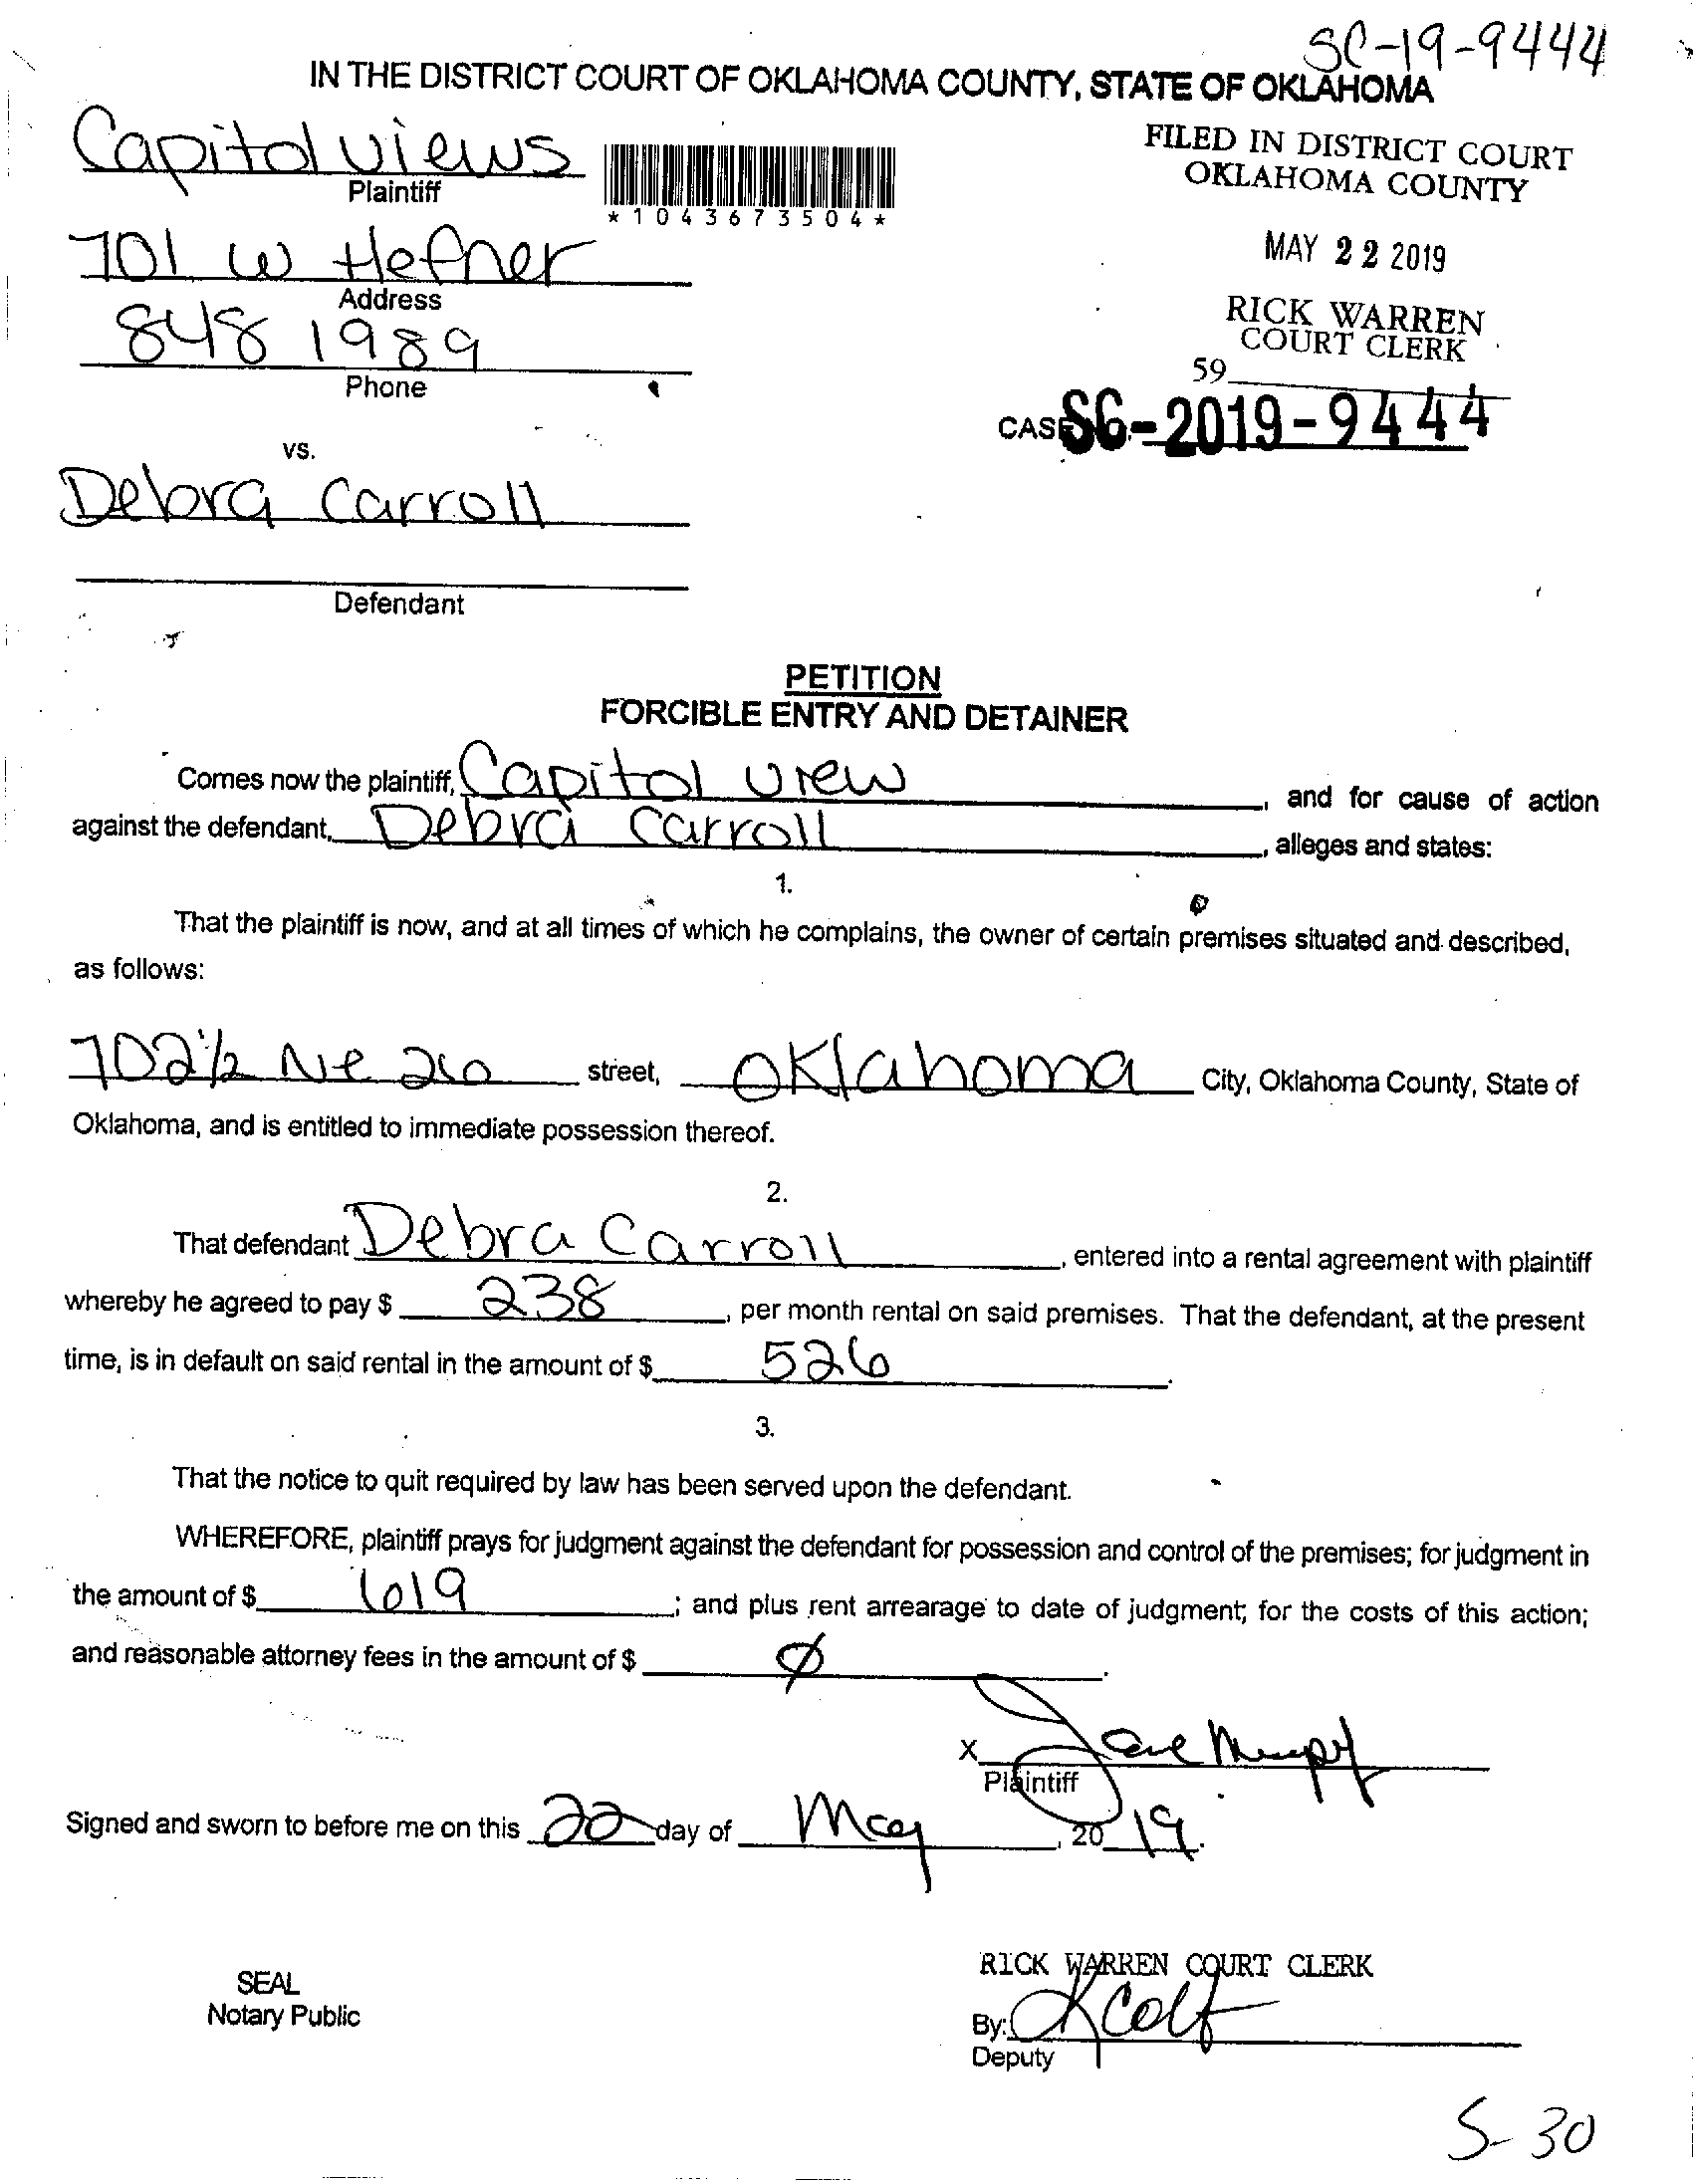 SC-19-9444
IN THE DISTRICT COURT OF OKLAHOMA COUNTY, STATE OF OKLAHOMA
Capitol views
Plaintiff
*1043673504*
FILED IN DISTRICT COURT
OKLAHOMA COUNTY
701 W Hefner
Address
MAY 22 2019
848 1989
Phone
RICK WARREN
COURT CLERK
59
CASE NO. SC-2019-9444
vs.
Debra Carroll
Defendant
PETITION
FORCIBLE ENTRY AND DETAINER
Comes now the plaintiff, Capitol view, and for cause of action
against the defendant, Debra Carroll, alleges and states:
1.
That the plaintiff is now, and at all times of which he complains, the owner of certain premises situated and described,
as follows:
702 1/2 Ne 26 street, Oklahoma City, Oklahoma County, State of
Oklahoma, and is entitled to immediate possession thereof.
2.
That defendant Debra Carroll, entered into a rental agreement with plaintiff
whereby he agreed to pay $ 238, per month rental on said premises. That the defendant, at the present
time, is in default on said rental in the amount of $ 526.
3.
That the notice to quit required by law has been served upon the defendant.
WHEREFORE, plaintiff prays for judgment against the defendant for possession and control of the premises; for judgment in
the amount of $ 619; and plus rent arrearage to date of judgment; for the costs of this action;
and reasonable attorney fees in the amount of $ Ø.
X
Plaintiff
Signed and sworn to before me on this 22 day of May, 20 19.
SEAL
Notary Public
RICK WARREN COURT CLERK
By:
Deputy
5-30